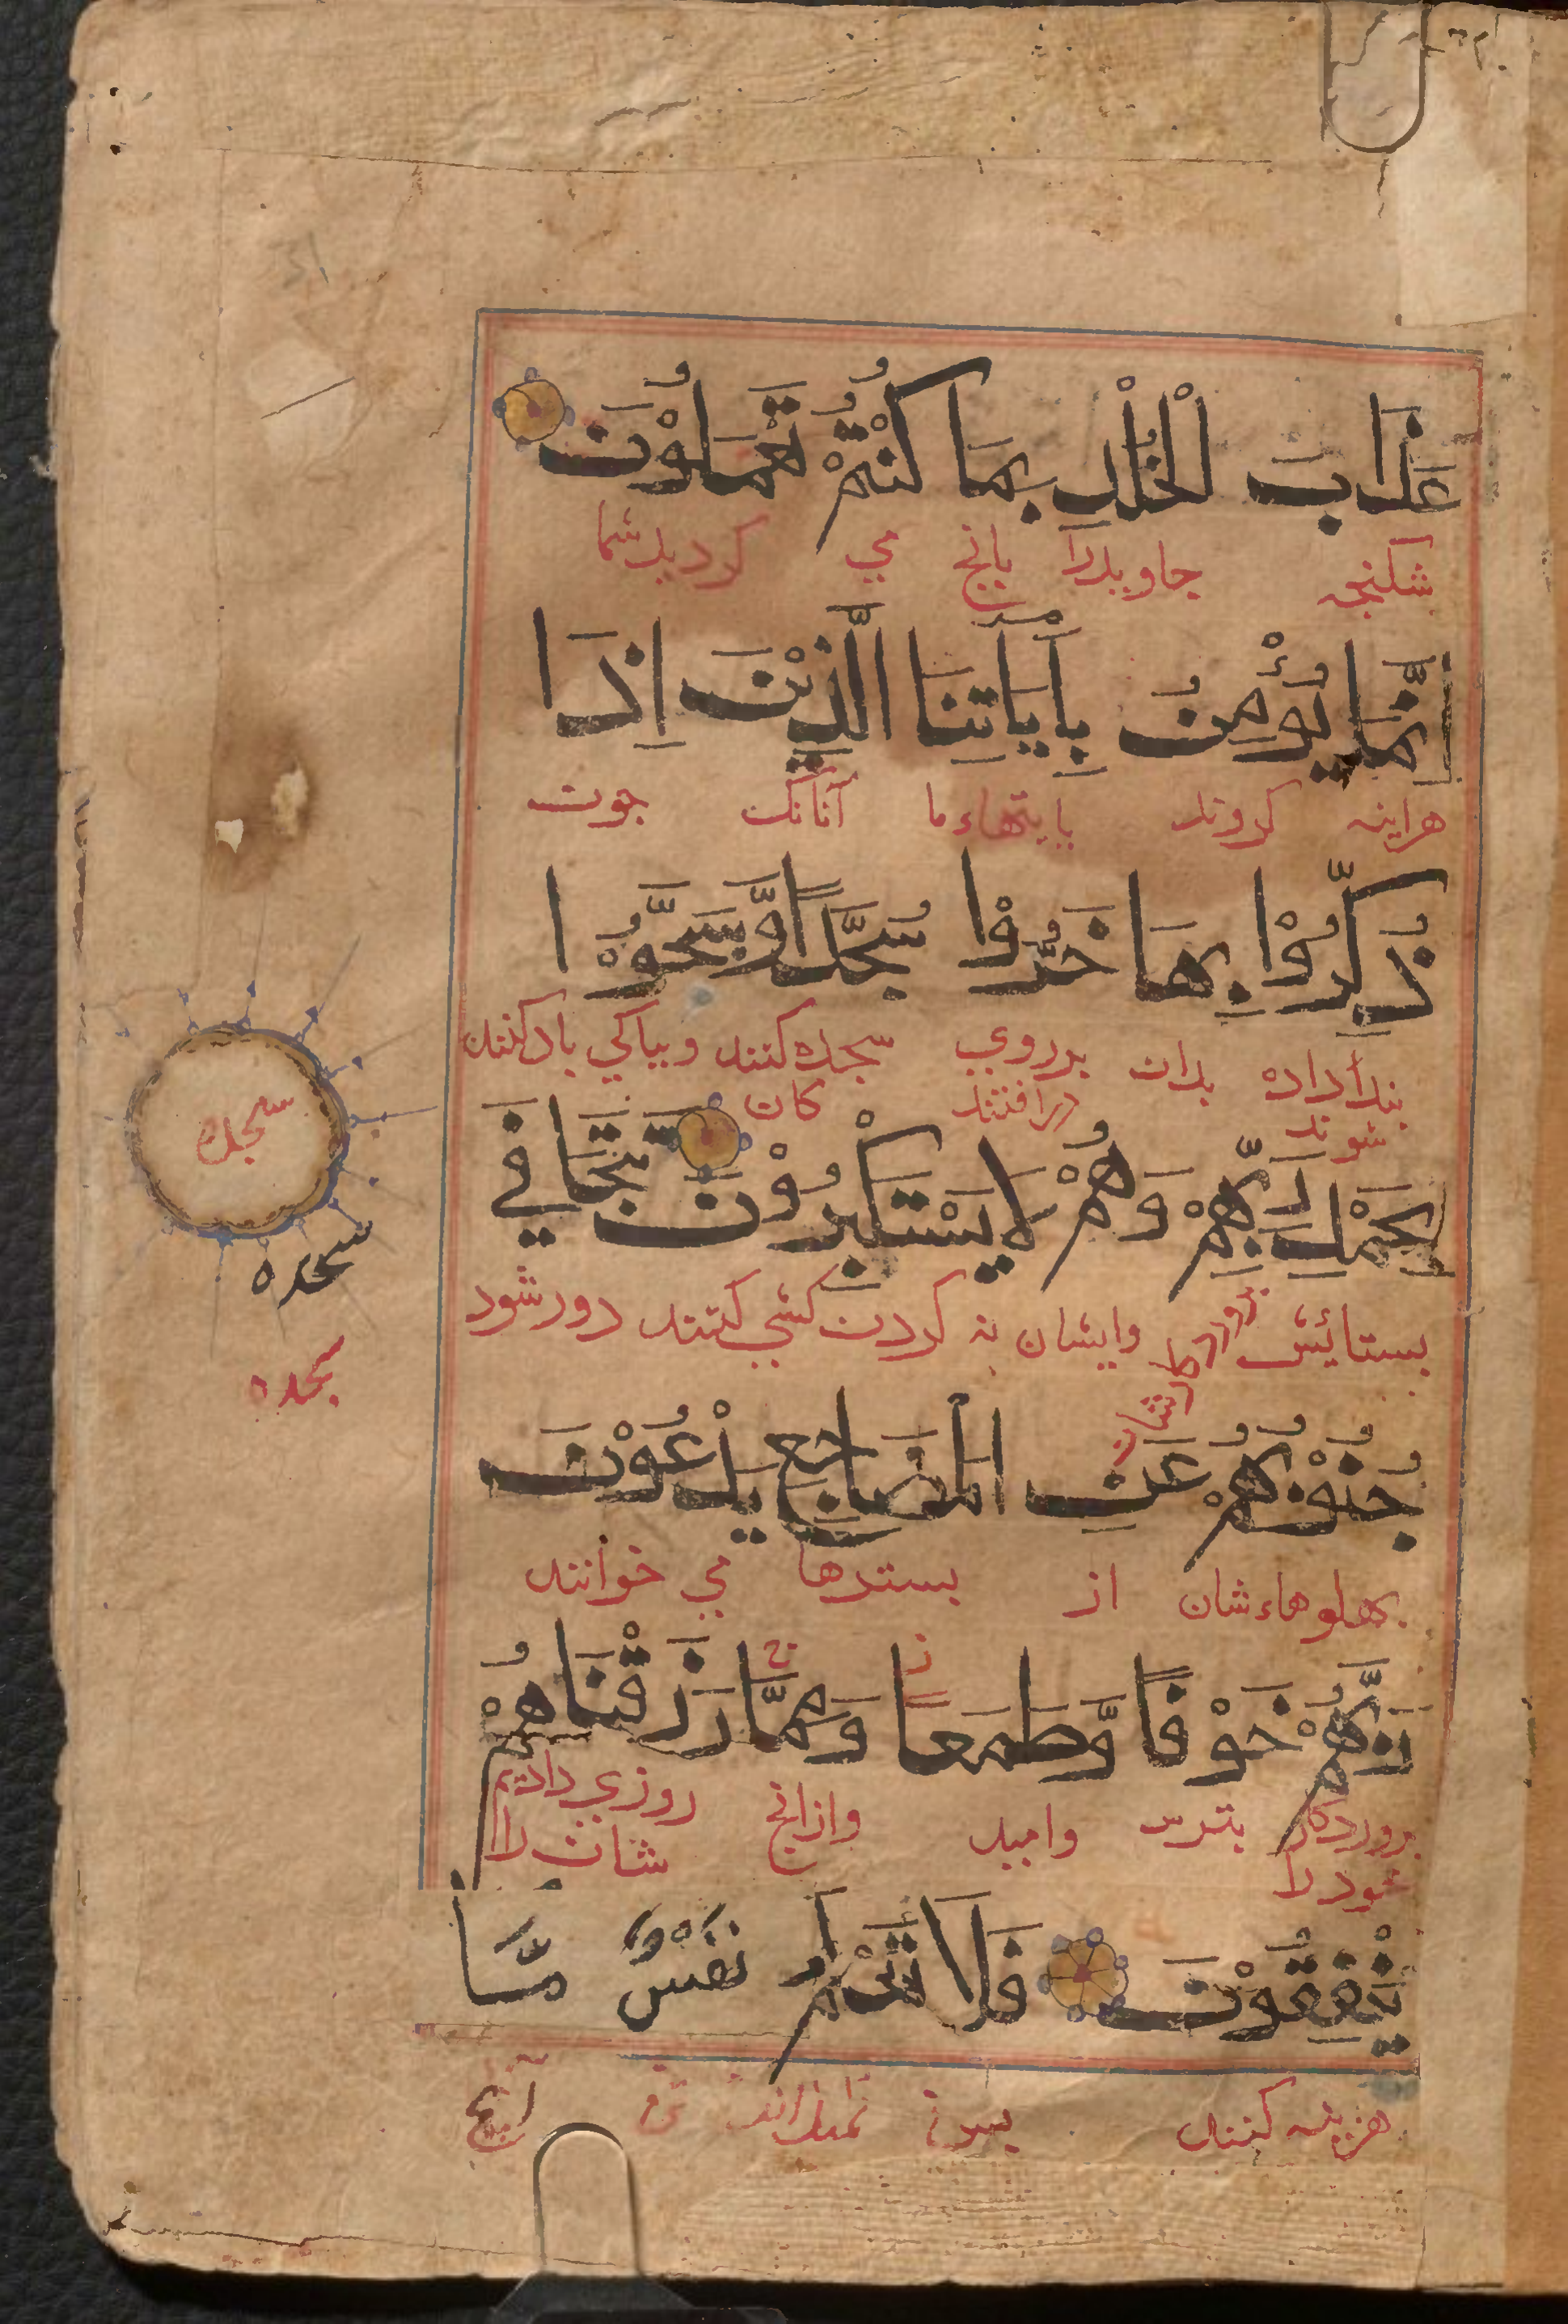 عَذَابَ الْخُلْدِ بِمَا كُنْتُمْ تَعْمَلُوْنَ
شکنجه جاویدرا بانچ می کردید شما
اِنَّمَا یُؤْمِنُ بِاٰیَاتِنَا الَّذِیْنَ اِذَا
هراینه کروند بایتهاء ما آنانک چون
ذُکِّرُوْا بِهَا خَرُّوْا سُجَّدًا وَّسَبَّحُوْا
پنداداده شوند بدان برروی درافتند سجده کنند کان وبپاکی یادکنند
بِحَمْدِ رَبِّهِمْ وَهُمْ لَا یَسْتَکْبِرُوْنَ تَتَجَافٰی
بستائش وایشان نه کردن کشی کنند دور شود
جُنُوْبُهُمْ عَنِ الْمَضَاجِعِ یَدْعُوْنَ
پهلوهاء شان از بسترها می خوانند
رَبَّهُمْ خَوْفًا وَّطَمَعًا وَمِمَّا رَزَقْنَاهُمْ
پروردکار خود را بترس وامید وازانچ روزی دادیم شان را
یُنْفِقُوْنَ فَلَا تَعْلَمُ نَفْسٌ مَّا
هزینه کنند پس نه نمیداند تن آنچ
سجده
سجده
سجده